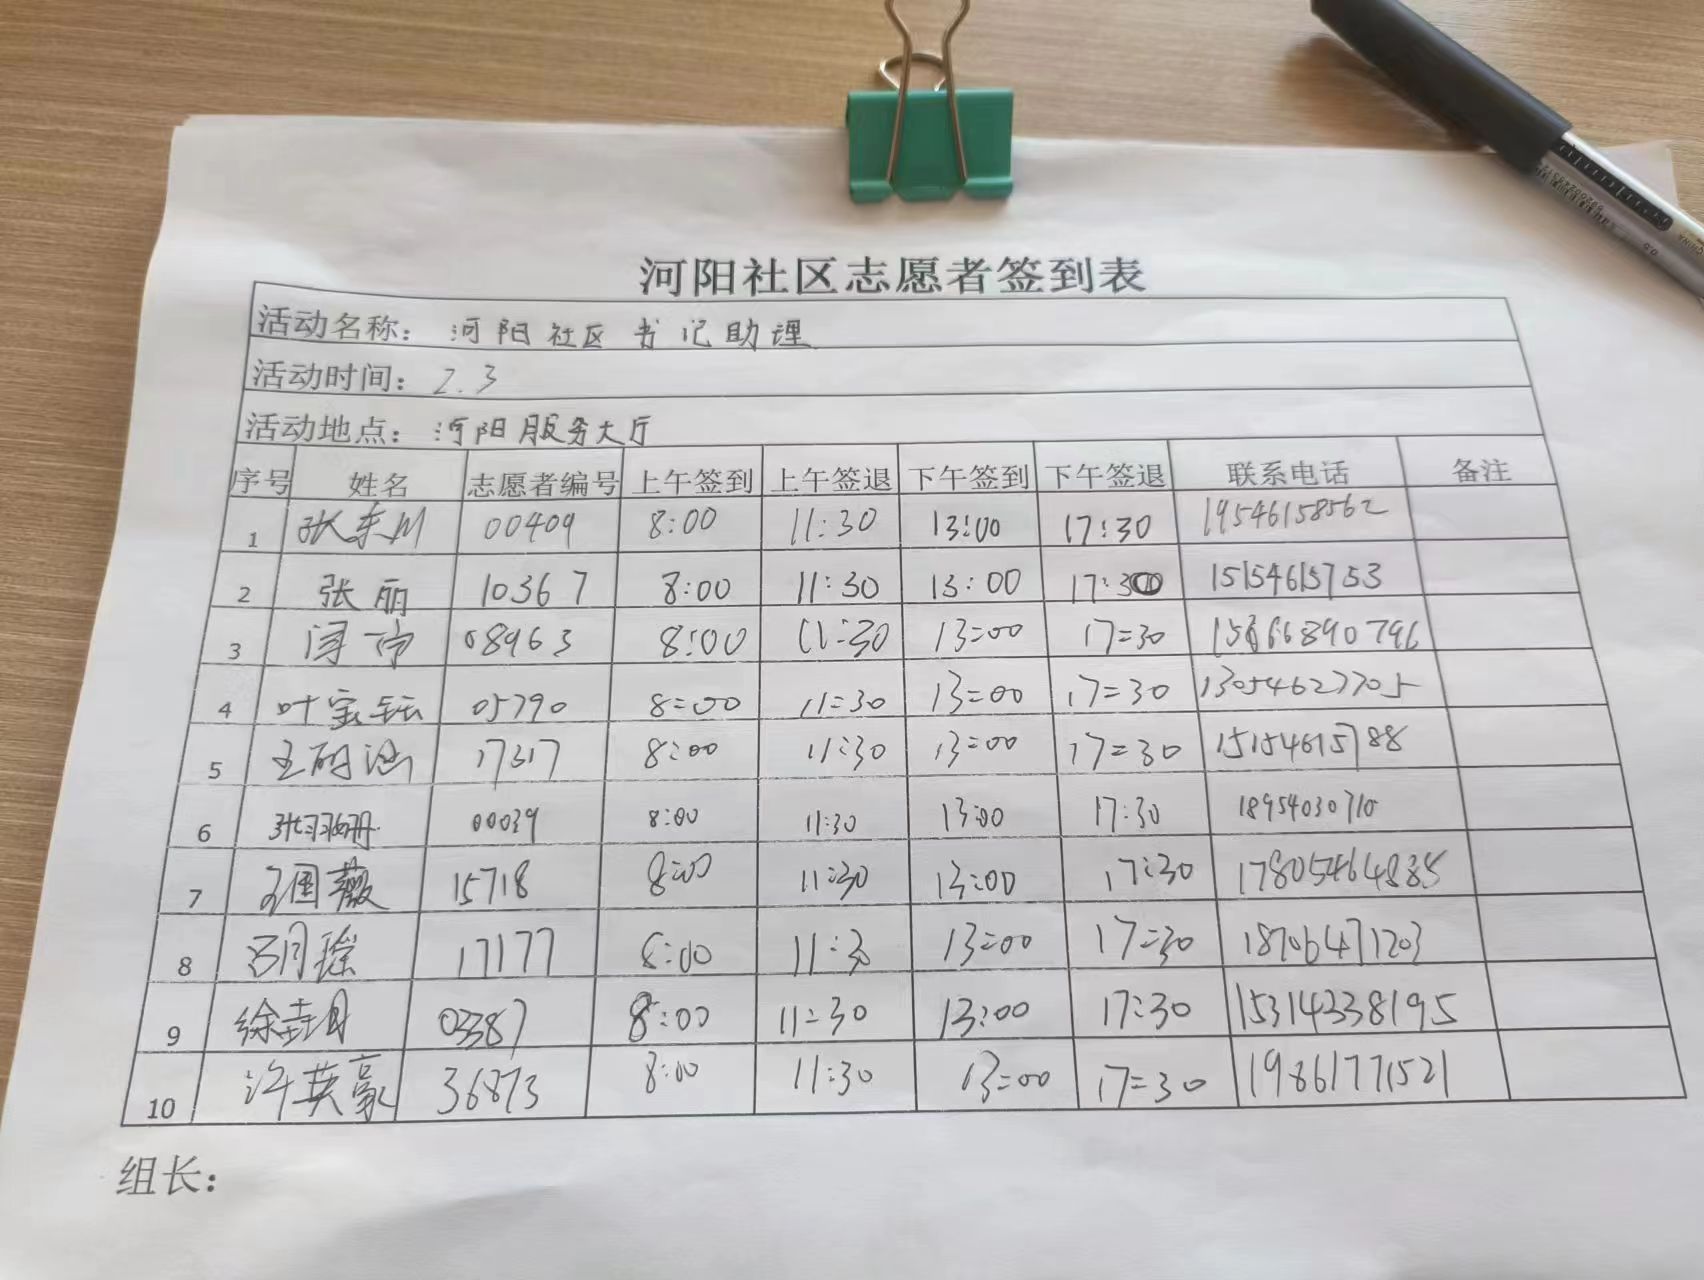 河阳社区志愿者签到表
活动名称：河阳社区书记助理
活动时间：2.3
活动地点：河阳服务大厅
序号 姓名 志愿者编号 上午签到 上午签退 下午签到 下午签退 联系电话 备注
1 张东川 00409 8:00 11:30 13:00 17:30 19546158562
2 张丽 10367 8:00 11:30 13:00 17:30 15154615753
3 08963 8:00 11:30 13:00 17=30 15666890796
4 叶宝 05790 8=00 11=30 13=00 17=30 13054627705
5 王 17317 8:00 11:30 13=00 17=30 15154615788
6 张 00039 8:00 11:30 13:00 17:30 18954030710
7 国薇 15718 8:00 11:30 13:00 17:30 17805464885
8 吕月瑶 17177 8:00 11:30 13=00 17=30 18706471203
9 徐 03387 8:00 11=30 13:00 17:30 15314238195
10 许英豪 36873 8:00 11:30 13=00 17=30 19861771521
组长：